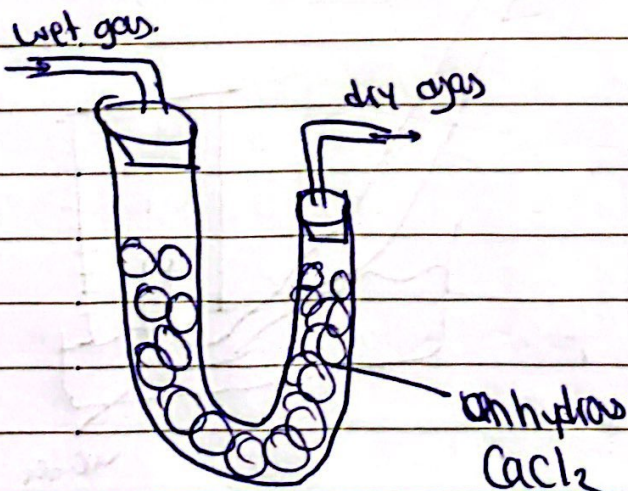 wet gas.
dry gas
anhydrous
CaCl₂